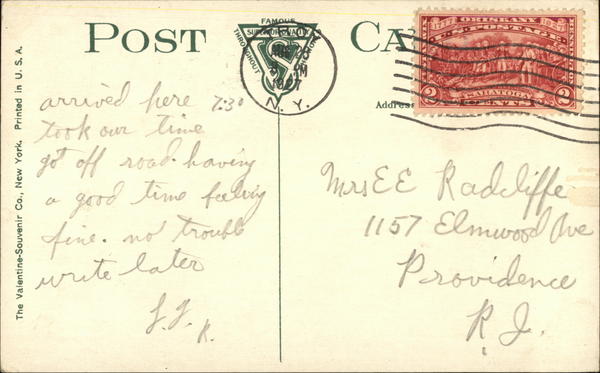 POST CA
FAMOUS
THROUGHOUT
1927
N. Y.
ORISKANY
U.S. POSTAGE
SARATOGA
2 CENTS 2
Address
The Valentine-Souvenir Co., New York. Printed in U. S. A.
arrived here 7:30
took our time
got off road. having
a good time feeling
fine. no trouble
write later
Mrs E E Radcliffe
1157 Elmwood Ave
Providence
R. I.